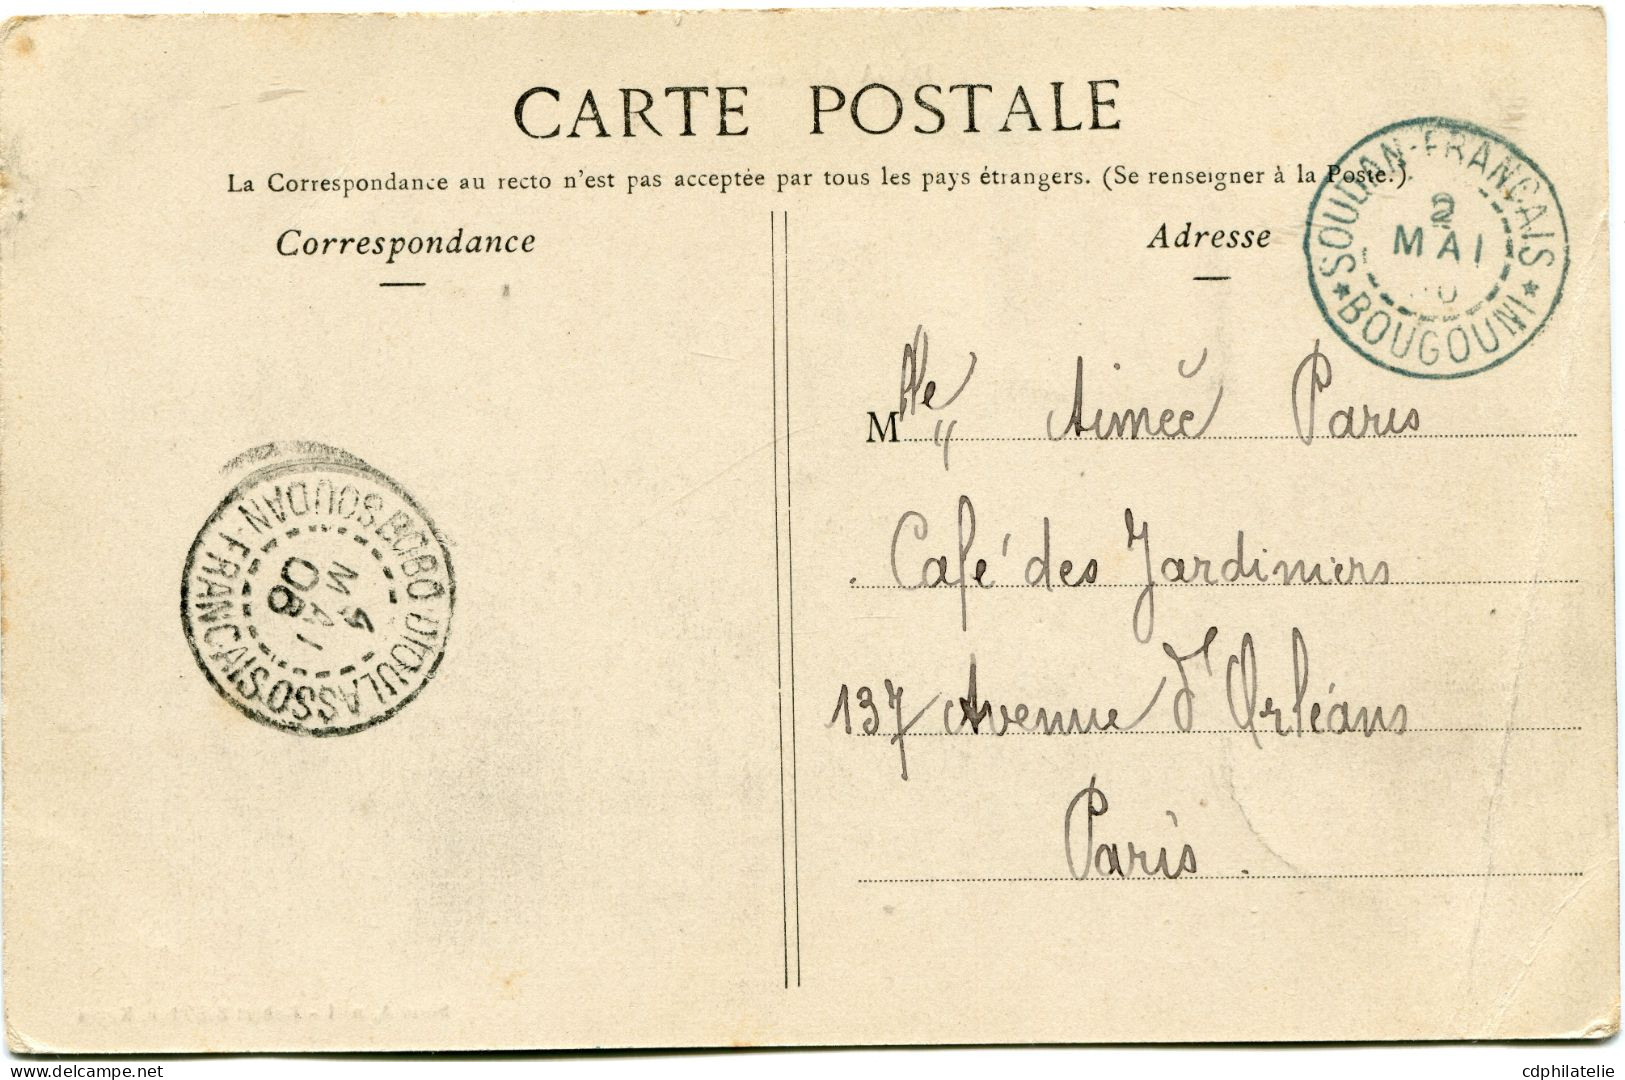 CARTE POSTALE
La Correspondance au recto n'est pas acceptée par tous les pays étrangers. (Se renseigner à la Poste.)
Correspondance
Adresse
SOUDAN-FRANÇAIS
2
MAI
★ BOUGOUNI ★
Mlle Aimée Paris
Café des Jardiniers
137 Avenue d'Orléans
Paris.
BOBO-DIOULASSO
SOUDAN-FRANÇAIS
4
MAI
06
delcampe.net
cdphilatelie